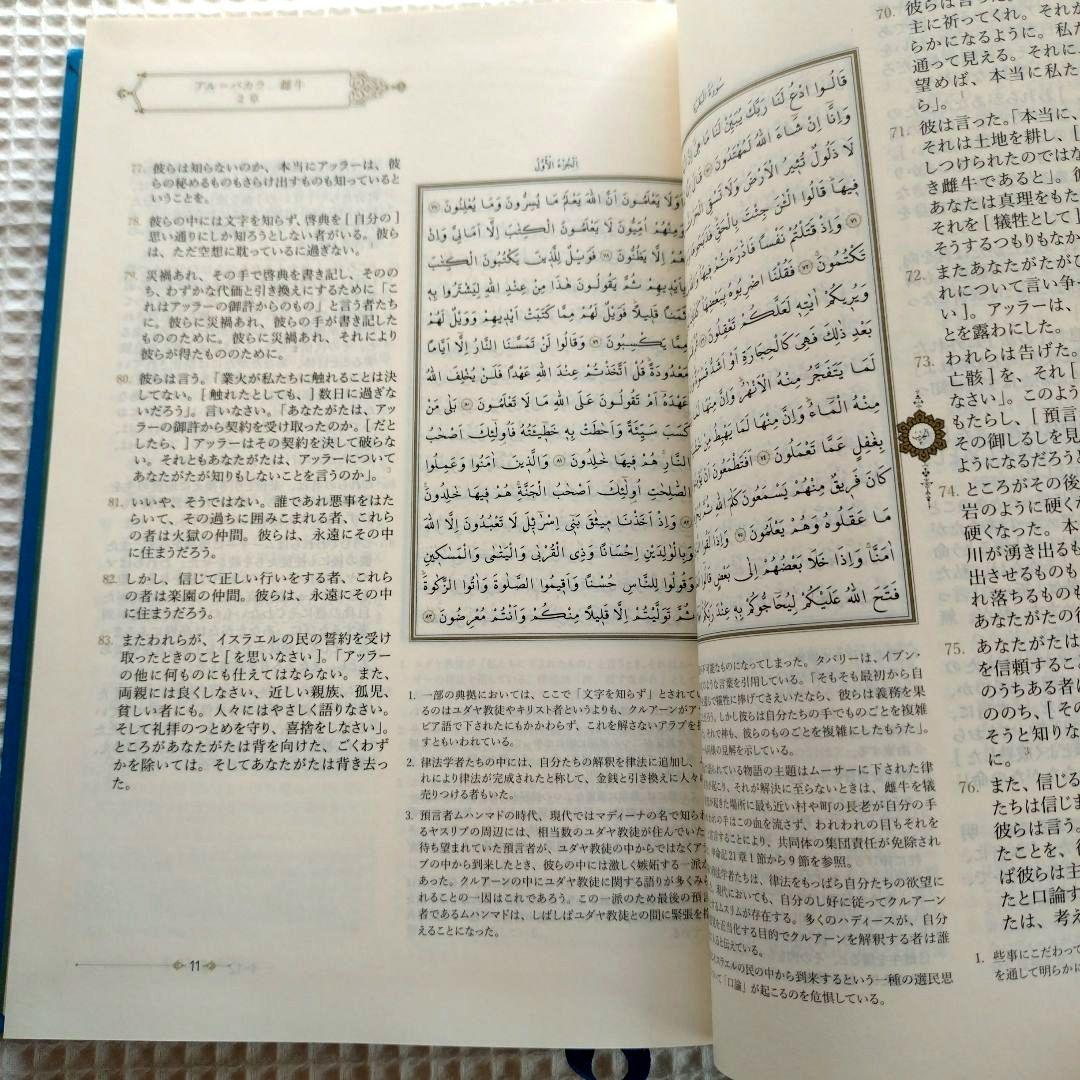 アル＝バカラ 雌牛
2 章
77. 彼らは知らないのか、本当にアッラーは、彼
らの秘めるものもさらけ出すものも知っていると
いうことを。
78. 彼らの中には文字を知らず、啓典を [ 自分の ]
思い通りにしか知ろうとしない者がいる。彼ら
は、ただ空想に耽っているに過ぎない。
79. 災禍あれ、その手で啓典を書き記し、そのの
ち、わずかな代価と引き換えにするために「こ
れはアッラーの御許からのもの」と言う者たち
に。彼らに災禍あれ、彼らの手が書き記した
もののために。彼らに災禍あれ、それにより
彼らが得たもののために。
80. 彼らは言う。「業火が私たちに触れることは決
してない。[ 触れたとしても、] 数日に過ぎな
いだろう」。言いなさい。「あなたがたは、アッ
ラーの御許から契約を受け取ったのか。[ だと
したら、] アッラーはその契約を決して破らな
い。それともあなたがたは、アッラーについて
あなたがたが知りもしないことを言うのか」。3
81. いいや、そうではない。誰であれ悪事をはた
らいて、その過ちに囲みこまれる者、これら
の者は火獄の仲間。彼らは、永遠にその中
に住まうだろう。
82. しかし、信じて正しい行いをする者、これら
の者は楽園の仲間。彼らは、永遠にその中
に住まうだろう。
83. またわれらが、イスラエルの民の誓約を受け
取ったときのこと [ を思いなさい ]。「アッラー
の他に何ものにも仕えてはならない。また、
両親には良くしなさい、近しい親族、孤児、
貧しい者にも。人々にはやさしく語りなさい。
そして礼拝のつとめを守り、喜捨をしなさい」。
ところがあなたがたは背を向けた、ごくわず
かを除いては。そしてあなたがたは背き去っ
た。
11
الجزء الأول
أَوَلَا يَعْلَمُونَ أَنَّ اللهَ يَعْلَمُ مَا يُسِرُّونَ وَمَا يُعْلِنُونَ ﴿٧٧﴾
وَمِنْهُمْ أُمِّيُّونَ لَا يَعْلَمُونَ الْكِتَابَ إِلَّا أَمَانِيَّ وَإِنْ
هُمْ إِلَّا يَظُنُّونَ ﴿٧٨﴾ فَوَيْلٌ لِلَّذِينَ يَكْتُبُونَ الْكِتَابَ
بِأَيْدِيهِمْ ثُمَّ يَقُولُونَ هٰذَا مِنْ عِنْدِ اللهِ لِيَشْتَرُوا بِهِ
ثَمَنًا قَلِيلًا فَوَيْلٌ لَهُمْ مِمَّا كَتَبَتْ أَيْدِيهِمْ وَوَيْلٌ لَهُمْ
مِمَّا يَكْسِبُونَ ﴿٧٩﴾ وَقَالُوا لَنْ تَمَسَّنَا النَّارُ إِلَّا أَيَّامًا
مَعْدُودَةً قُلْ أَتَّخَذْتُمْ عِنْدَ اللهِ عَهْدًا فَلَنْ يُخْلِفَ اللهُ
عَهْدَهُ أَمْ تَقُولُونَ عَلَى اللهِ مَا لَا تَعْلَمُونَ ﴿٨٠﴾ بَلَى مَنْ
كَسَبَ سَيِّئَةً وَأَحَاطَتْ بِهِ خَطِيئَتُهُ فَأُولٰئِكَ أَصْحَابُ
النَّارِ هُمْ فِيهَا خَالِدُونَ ﴿٨١﴾ وَالَّذِينَ آمَنُوا وَعَمِلُوا
الصَّالِحَاتِ أُولٰئِكَ أَصْحَابُ الْجَنَّةِ هُمْ فِيهَا خَالِدُونَ
﴿٨٢﴾ وَإِذْ أَخَذْنَا مِيثَاقَ بَنِي إِسْرَائِيلَ لَا تَعْبُدُونَ إِلَّا اللهَ
وَبِالْوَالِدَيْنِ إِحْسَانًا وَذِي الْقُرْبَى وَالْيَتَامَى وَالْمَسَاكِينِ
وَقُولُوا لِلنَّاسِ حُسْنًا وَأَقِيمُوا الصَّلٰوةَ وَآتُوا الزَّكٰوةَ
ثُمَّ تَوَلَّيْتُمْ إِلَّا قَلِيلًا مِنْكُمْ وَأَنْتُمْ مُعْرِضُونَ ﴿٨٣﴾
1. 一部の典拠においては、ここで「文字を知らず」とされてい
るのはユダヤ教徒やキリスト者というよりも、クルアーンがア
ビア語で下されたにもかかわらず、これを解さないアラブを
すともいわれている。
2. 律法学者たちの中には、自分たちの解釈を律法に追加し、
れにより律法が完成されたと称して、金銭と引き換えに人々
売りつける者もいた。
3. 預言者ムハンマドの時代、現代ではマディーナの名で知られ
るヤスリブの周辺には、相当数のユダヤ教徒が住んでいた
待ち望まれていた預言者が、ユダヤ教徒の中からではなくア
ブの中から到来したとき、彼らの中には激しく嫉妬する一派
あった。クルアーンの中にユダヤ教徒に関する語りが多くみら
ることの一因はこれであろう。この一派のため最後の預
者であるムハンマドは、しばしばユダヤ教徒との間に緊張を
えることになった。
قَالُوا ادْعُ لَنَا رَبَّكَ يُبَيِّنْ لَنَا مَا هِيَ
وَإِنَّا إِنْ شَاءَ اللهُ لَمُهْتَدُونَ ﴿٧٠﴾ قَالَ
لَا ذَلُولٌ تُثِيرُ الْأَرْضَ وَلَا تَسْقِي
فِيهَا قَالُوا الْآنَ جِئْتَ بِالْحَقِّ فَذَبَحُوهَا
﴿٧١﴾ وَإِذْ قَتَلْتُمْ نَفْسًا فَادَّارَأْتُمْ فِيهَا
تَكْتُمُونَ ﴿٧٢﴾ فَقُلْنَا اضْرِبُوهُ بِبَعْضِهَا
وَيُرِيكُمْ آيَاتِهِ لَعَلَّكُمْ تَعْقِلُونَ
بَعْدِ ذٰلِكَ فَهِيَ كَالْحِجَارَةِ أَوْ أَشَدُّ
لَمَا يَتَفَجَّرُ مِنْهُ الْأَنْهَارُ وَإِنَّ مِنْهَا
مِنْهُ الْمَاءُ وَإِنَّ مِنْهَا لَمَا يَهْبِطُ
بِغَافِلٍ عَمَّا تَعْمَلُونَ ﴿٧٤﴾ أَفَتَطْمَعُونَ
كَانَ فَرِيقٌ مِنْهُمْ يَسْمَعُونَ كَلَامَ اللهِ
مَا عَقَلُوهُ وَهُمْ يَعْلَمُونَ ﴿٧٥﴾ وَإِذَا
آمَنَّا وَإِذَا خَلَا بَعْضُهُمْ إِلَى بَعْضٍ
فَتَحَ اللهُ عَلَيْكُمْ لِيُحَاجُّوكُمْ بِهِ عِنْدَ
不可能なものになってしまった。タバリーは、イブン・
ような言葉を引用している。「そもそも最初から自
で犠牲に捧げてさえいたなら、彼らは義務を果
ろう。しかし彼らは自分たちの手でものごとを複雑
それで神も、彼らのものごとを複雑にしたもうた」。
の見解を示している。
られている物語の主題はムーサーに下された律
が起こり、それが解決に至らないときは、雌牛を犠
が起きた場所に最も近い村や町の長老が自分の手
の手はこの血を流さず、われわれの目もそれを
言することにより、共同体の集団責任が免除され
命記21章1節から9節を参照。
法学者たちは、律法をもっぱら自分たちの欲望に
現代においても、自分のし好に従ってクルアーン
ムスリムが存在する。多くのハディースが、自分
を正当化する目的でクルアーンを解釈する者は誰
ると伝えている。
イスラエルの民の中から到来するという一種の選民思
て「口論」が起こるのを危惧している。
70. 彼らは言った
主に祈ってくれ。それが
らかになるように。私た
通って見える。それに
望めば、本当に私た
ら」。
71. 彼は言った。「本当に、
それは土地を耕し、[
しつけられたのではな
き雌牛であると」。彼
あなたは真理をもた
それを [ 犠牲として ]
そうするつもりもなか
72. またあなたがたがひ
れについて言い争っ
い ]。アッラーは、
とを露わにした。
73. われらは告げた。
亡骸 ] を、それ [
なさい」。このよう
もたらし、[ 預言
その御しるしを見
ようになるだろうと
74. ところがその後
岩のように硬くな
硬くなった。本
川が湧き出るも
出させるものも
れ落ちるものも
あなたがたの行
75. あなたがたは
を信頼するこ
のうちある者は
ののち、[ その
そうと知りな
に。3
76. また、信じる
たちは信じま
彼らは言う。
たことを、彼
ば彼らは主
たと口論す
たは、考え
1. 些事にこだわって
を通して明らかに